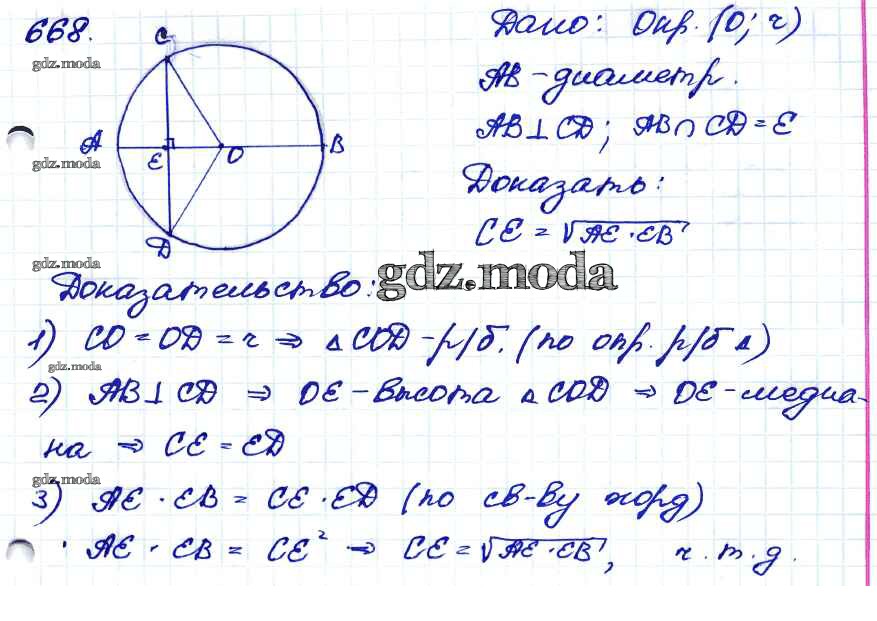 668.
gdz.moda
C
A
E
O
B
D
gdz.moda
Дано: Окр. (O; r)
AB - диаметр.
AB ⊥ CD; AB ∩ CD = E
Доказать:
CE = √AE · EB
gdz.moda
Доказательство:
gdz.moda
1) CO = OD = r ⇒ △ COD - р/б. (по опр. р/б △)
gdz.moda
2) AB ⊥ CD ⇒ OE - высота △ COD ⇒ OE - медиа-
на ⇒ CE = ED
gdz.moda
3) AE · EB = CE · ED (по св-ву хорд)
AE · EB = CE² ⇒ CE = √AE · EB, ч.т.д.